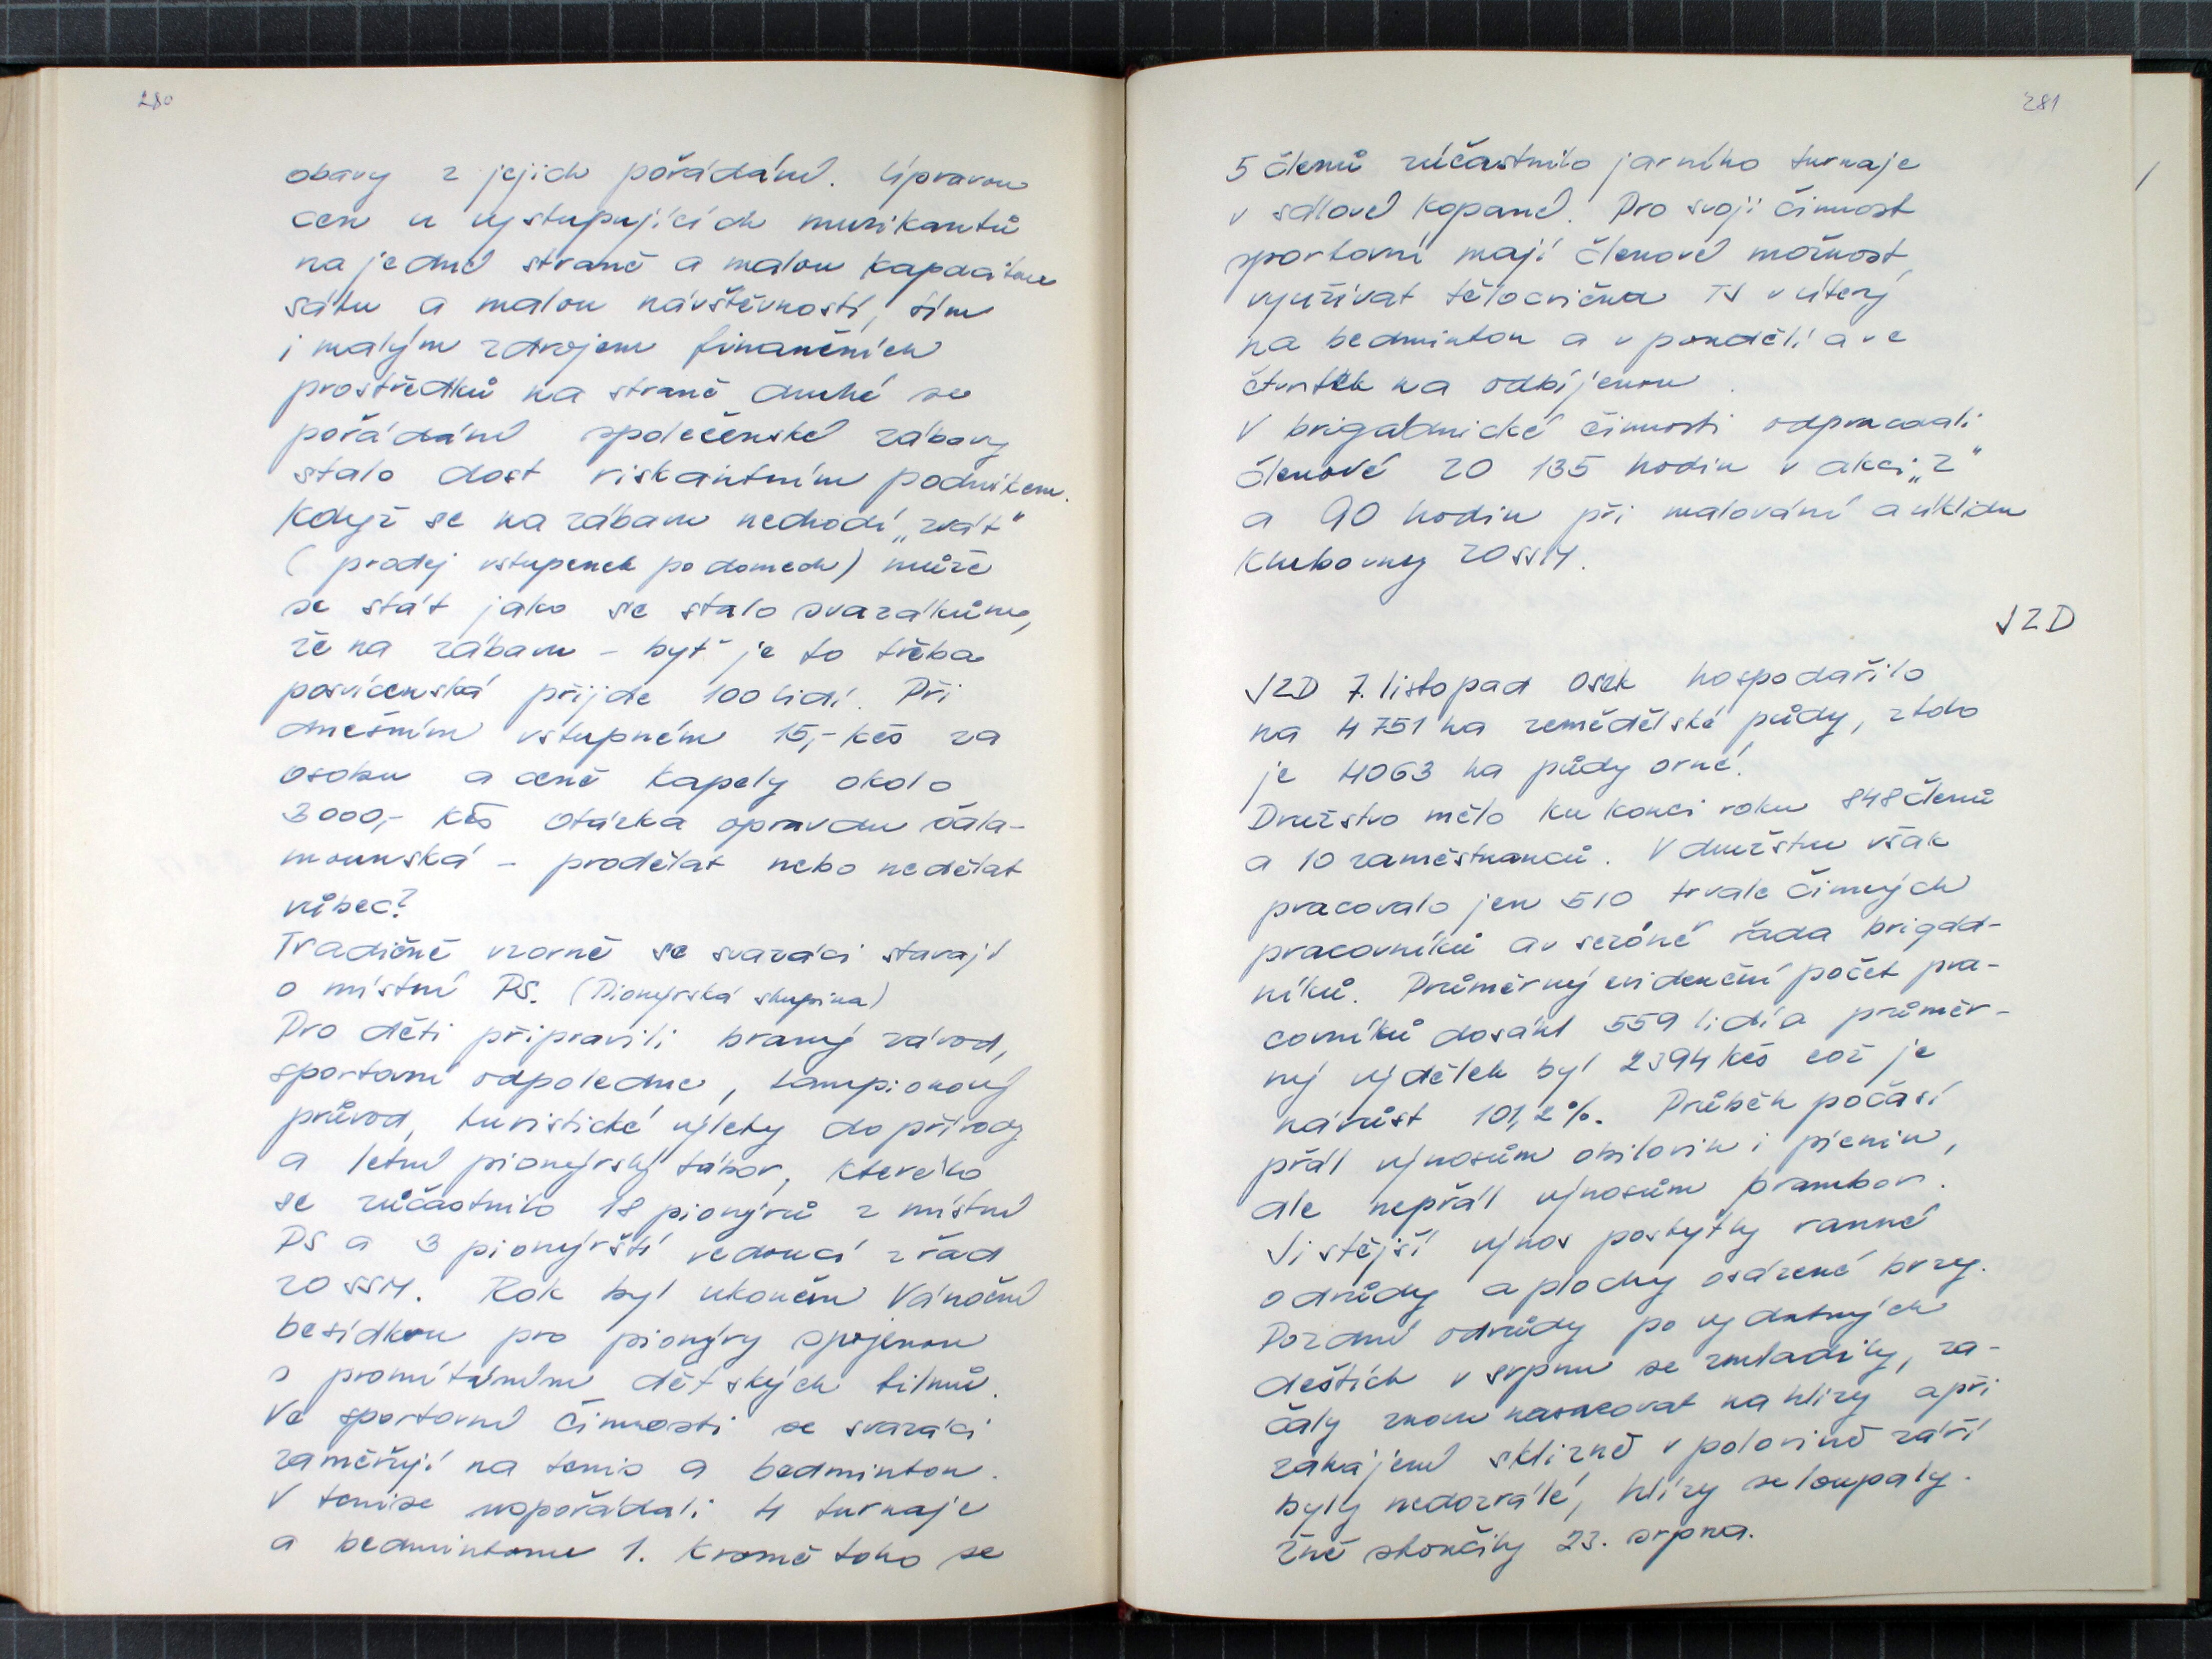 280
obavy z jejich pořádání. Úpravou
cen u vystupujících muzikantů
na jedné straně a malou kapacitou
sálu a malou návštěvností, tím
i malým zdrojem finančních
prostředků na straně druhé se
pořádání společenské zábavy
stalo dost riskantním podnikem.
Když se na zábavu nechodí „zvát"
(prodej vstupenek po domech) může
se stát jako se stalo svazákům,
že na zábavu – byť je to třeba
posvícenská přijde 100 lidí. Při
dnešním vstupném 15,- kčs za
osobu a ceně kapely okolo
3000,- kčs otázka opravdu šala-
mounská – prodělat nebo nedělat
vůbec?
Tradičně vzorně se svazáci starají
o místní PS. (Pionýrská skupina)
Pro děti připravili branný závod,
sportovní odpoledne, lampionový
průvod, turistické výlety do přírody
a letní pionýrský tábor, kterého
se zúčastnilo 18 pionýrů z místní
PS a 3 pionýrští vedoucí z řad
ZO SSM. Rok byl ukončen Vánoční
besídkou pro pionýry spojenou
s promítáním dětských filmů.
Ve sportovní činnosti se svazáci
zaměřují na tenis a bedminton.
V tenise uspořádali 4 turnaje
a bedmintonu 1. Kromě toho se
281
5 členů zúčastnilo jarního turnaje
v sálové kopané. Pro svoji činnost
sportovní mají členové možnost
využívat tělocvičnu TJ v úterý
na bedminton a v pondělí a ve
čtvrtek na odbíjenou.
V brigádnické činnosti odpracovali
členové ZO 135 hodin v akci „Z"
a 90 hodin při malování a úklidu
klubovny ZO SSM.
JZD
JZD 7. listopad Osek hospodařilo
na 4751 ha zemědělské půdy, z toho
je 4063 ha půdy orné.
Družstvo mělo ku konci roku 848 členů
a 10 zaměstnanců. V družstvu však
pracovalo jen 510 trvale činných
pracovníků a v sezóně řada brigád-
níků. Průměrný evidenční počet pra-
covníků dosáhl 559 lidí a průměr-
ný výdělek byl 2394 kčs což je
nárůst 101,2%. Průběh počasí
přál výnosům obilovin i pícnin,
ale nepřál výnosům brambor.
Jistější výnos poskytly ranné
odrůdy a plochy osázené brzy.
Pozdní odrůdy po vydatných
deštích v srpnu se zmladily, za-
čaly znovu nasazovat na hlízy a při
zahájení sklizně v polovině září
byly nedozrálé, hlízy se loupaly.
Žně skončily 23. srpna.